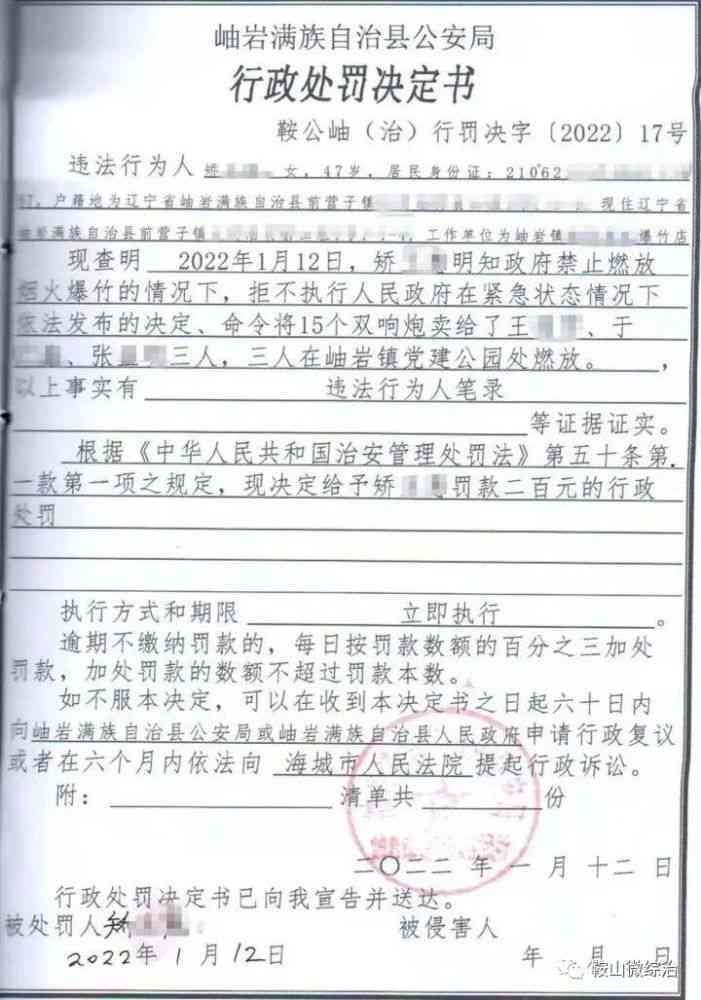 岫岩满族自治县公安局
行政处罚决定书
鞍公岫（治）行罚决字〔2022〕17号
违法行为人 矫 女，47岁，居民身份证：21062
户籍地为辽宁省岫岩满族自治县前营子镇 现住辽宁省
岫岩满族自治县前营子镇 工作单位为岫岩镇 爆竹店
现查明 2022年1月12日，矫 明知政府禁止燃放
烟火爆竹的情况下，拒不执行人民政府在紧急状态情况下
依法发布的决定、命令将15个双响炮卖给了王 、于
、张 三人，三人在岫岩镇党建公园处燃放。 ，
以上事实有 违法行为人笔录
等证据证实。
根据《中华人民共和国治安管理处罚法》第五十条第
一款第一项之规定，现决定给予矫 罚款二百元的行政
处罚
执行方式和期限 立即执行 。
逾期不缴纳罚款的，每日按罚款数额的百分之三加处
罚款，加处罚款的数额不超过罚款本数。
如不服本决定，可以在收到本决定书之日起六十日内
向岫岩满族自治县公安局或岫岩满族自治县人民政府申请行政复议
或者在六个月内依法向 海城市人民法院 提起行政诉讼。
附： 清单共 份
二〇二二 年 一 月 十二 日
行政处罚决定书已向我宣告并送达。
被处罚人 矫 被侵害人
2022年 1 月 12日 年 月 日
鞍山微综治